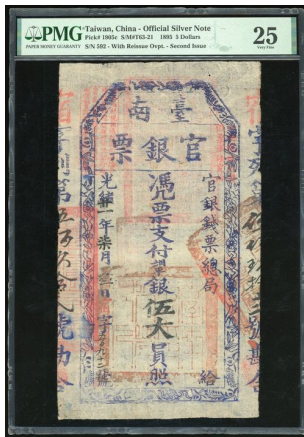 PMG
PAPER MONEY GUARANTY
Taiwan, China - Official Silver Note
Pick# 1905c S/M#T63-21 1895 5 Dollars
S/N 592 - With Reissue Ovpt. - Second Issue
25
Very Fine
臺南
官銀票
官銀錢票總局
給
憑票支付銀伍大員照
光緒年柒月日字號
第五百玖拾貳號勘合
號勘合